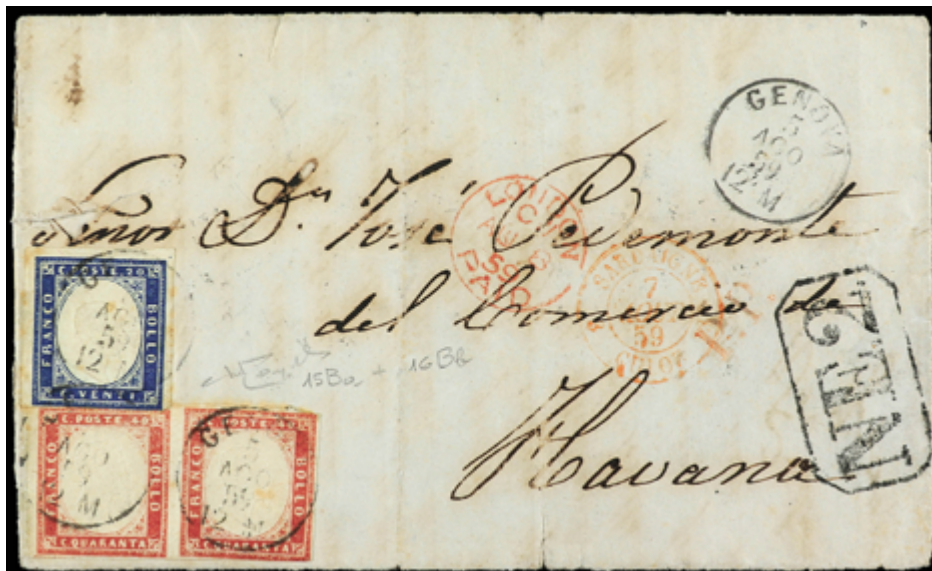 GENOVA
5
AGO
59
12 M
Señor Dn José Pedemonte
del Comercio de
Havana
LONDON
PAID
SARDAIGNE
7
59
NE 2
15Ba + 16Bb
C. POSTE. 20
FRANCO
BOLLO
C. VENTI
C. POSTE. 40
FRANCO
BOLLO
C. QUARANTA
C. POSTE. 40
FRANCO
BOLLO
C. QUARANTA
GE
5
AGO
59
12 M